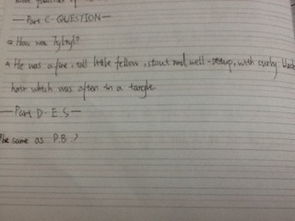 — Part C - QUESTION —
How was
He was a fine, tall little fellow, stout and well-setup, with curly black
hair which was often in a tangle
— Part D - E.S —
The same as P.B.